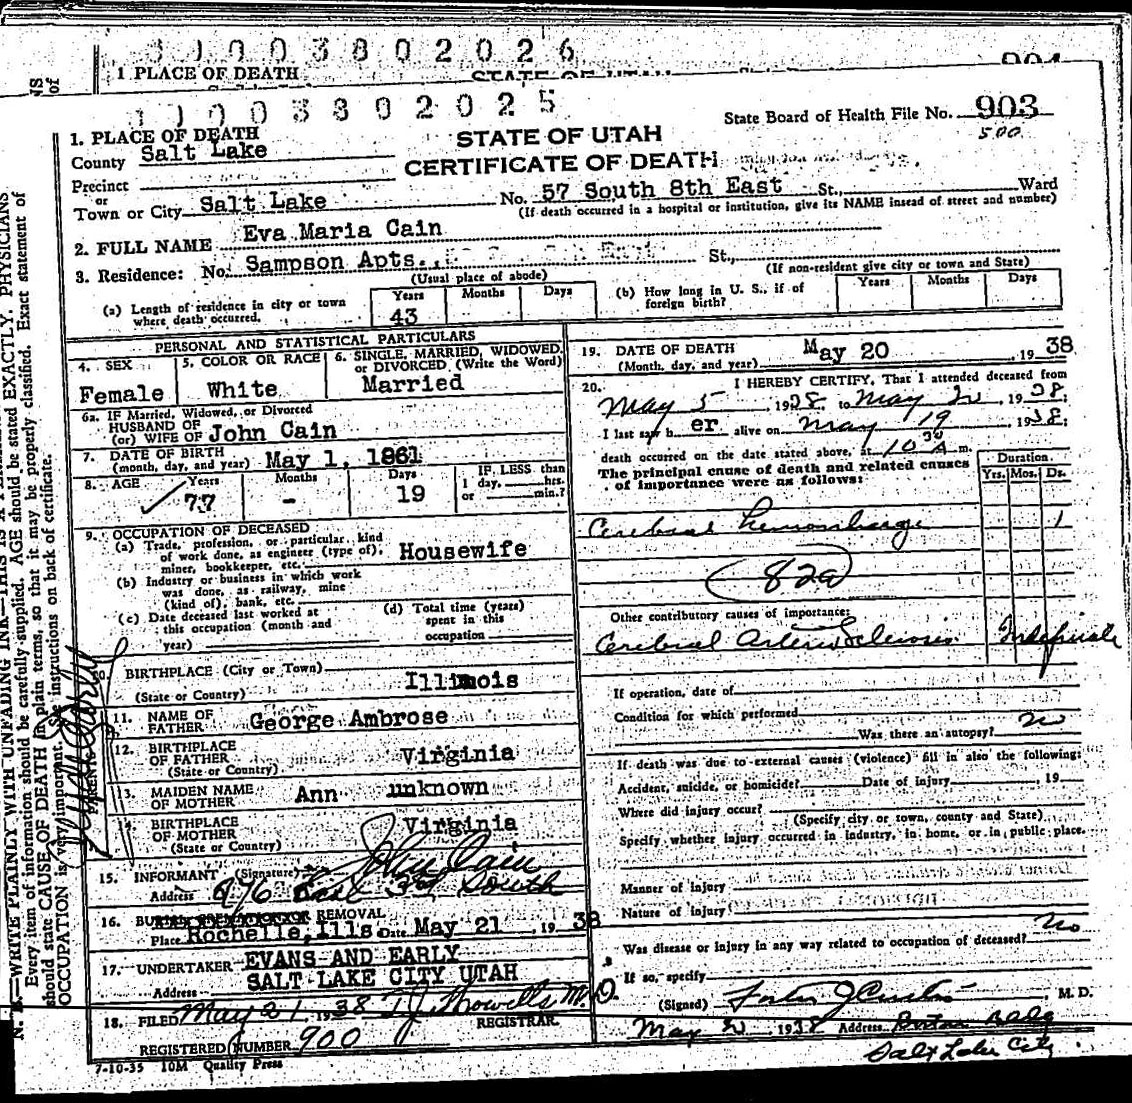 3 1 0 0 3 8 0 2 0 2 6
1 PLACE OF DEATH
STATE OF UTAH
904
1 0 0 3 8 0 2 0 2 5
State Board of Health File No. 903
500
1. PLACE OF DEATH
County Salt Lake
STATE OF UTAH
CERTIFICATE OF DEATH
Precinct
or
Town or City Salt Lake No. 57 South 8th East St., Ward
(If death occurred in a hospital or institution, give its NAME insead of street and number)
2. FULL NAME Eva Maria Cain
3. Residence: No. Sampson Apts., St.,
(Usual place of abode)
(If non-resident give city or town and State)
(a) Length of residence in city or town where death occurred.
Years Months Days
43
(b) How long in U. S., if of foreign birth?
Years Months Days
PERSONAL AND STATISTICAL PARTICULARS
4. SEX
Female
5. COLOR OR RACE
White
6. SINGLE, MARRIED, WIDOWED, or DIVORCED (Write the Word)
Married
6a. IF Married, Widowed, or Divorced
HUSBAND OF
(or) WIFE OF John Cain
7. DATE OF BIRTH
(month, day, and year) May 1, 1861
8. AGE Years Months Days
77 - 19
IF LESS than
1 day, hrs.
or min.?
9. OCCUPATION OF DECEASED
(a) Trade, profession, or particular kind
of work done, as engineer (type of),
miner, bookkeeper, etc. Housewife
(b) Industry or business in which work
was done, as railway, mine
(kind of), bank, etc.
(c) Date deceased last worked at
this occupation (month and
year)
(d) Total time (years)
spent in this
occupation
10. BIRTHPLACE (City or Town)
(State or Country) Illinois
11. NAME OF
FATHER George Ambrose
12. BIRTHPLACE
OF FATHER Virginia
(State or Country)
13. MAIDEN NAME
OF MOTHER Ann unknown
14. BIRTHPLACE
OF MOTHER Virginia
(State or Country)
15. INFORMANT (Signature) John Cain
Address 676 East 3rd South
16. BURIAL CREMATION OR REMOVAL
Place Rochelle, Ills Date May 21, 1938
17. UNDERTAKER EVANS AND EARLY
Address SALT LAKE CITY UTAH
18. FILED May 21, 1938 T J Howells M.D.
REGISTRAR.
REGISTERED NUMBER 900
7-10-35 10M Quality Press
19. DATE OF DEATH May 20, 1938
(Month, day, and year)
20. I HEREBY CERTIFY, That I attended deceased from
May 5, 1938, to May 20, 1938;
I last saw her alive on May 19 1938;
death occurred on the date stated above, at 10 30 A m.
The principal cause of death and related causes
of importance were as follows:
Duration
Yrs. Mos. Ds.
Cerebral hemorrhage 1
82a
Other contributory causes of importance:
Cerebral Arterio Sclerosis Indefinite
If operation, date of
Condition for which performed
Was there an autopsy? no
If death was due to external causes (violence) fill in also the following:
Accident, suicide, or homicide? Date of injury, 19
Where did injury occur?
(Specify city or town, county and State)
Specify whether injury occurred in industry, in home, or in public place.
Manner of injury
Nature of injury
Was disease or injury in any way related to occupation of deceased? no
If so, specify
(Signed) Foster J Curtis, M. D.
May 20 1938 Address Boston Bldg
Salt Lake City.
N. B.—WRITE PLAINLY WITH UNFADING INK—THIS IS A
Every item of information should be carefully supplied. AGE should be stated EXACTLY. PHYSICIANS
should state CAUSE OF DEATH in plain terms, so that it may be properly classified. Exact statement of
OCCUPATION is very important. See instructions on back of certificate.